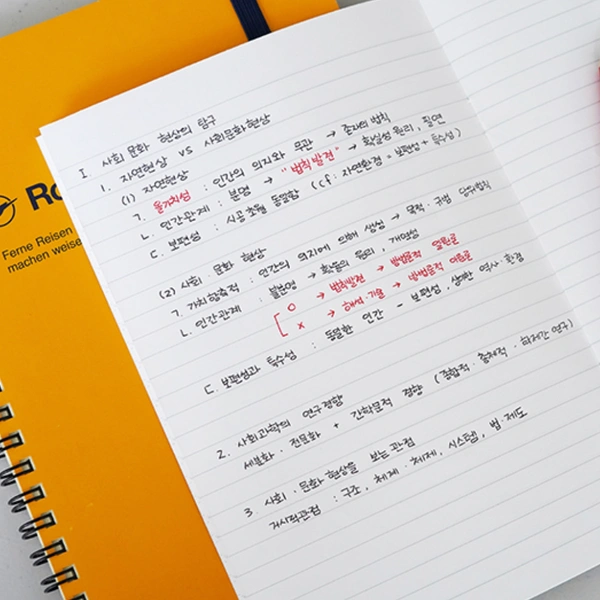 Ro
Ferne Reisen
machen weise
I. 사회 문화 현상의 탐구
1. 자연현상 vs 사회문화현상
(1) 자연현상
ㄱ. 몰가치성 : 인간의 의지와 무관 → 존재의 법칙
ㄴ. 인간관계 : 분명 → "법칙발견" → 확실성 원리, 필연
ㄷ. 보편성 : 시공 초월 동일함 (cf : 자연환경 = 보편성 + 특수성)
(2) 사회 문화 현상
ㄱ. 가치함축적 : 인간의 의지에 의해 생성 → 목적·규범 당위법칙
ㄴ. 인간관계 : 불분명 → 확률의 원리, 개연성
O → 법칙발견 → 방법론적 일원론
X → 해석·기술 → 방법론적 이원론
ㄷ. 보편성과 특수성 : 동일한 인간 - 보편성, 상이한 역사·환경
2. 사회과학의 연구경향
세분화·전문화 + 간학문적 경향 (종합적·총체적·학제간 연구)
3. 사회·문화 현상을 보는 관점
거시적관점 : 구조, 체계·체제, 시스템, 법·제도